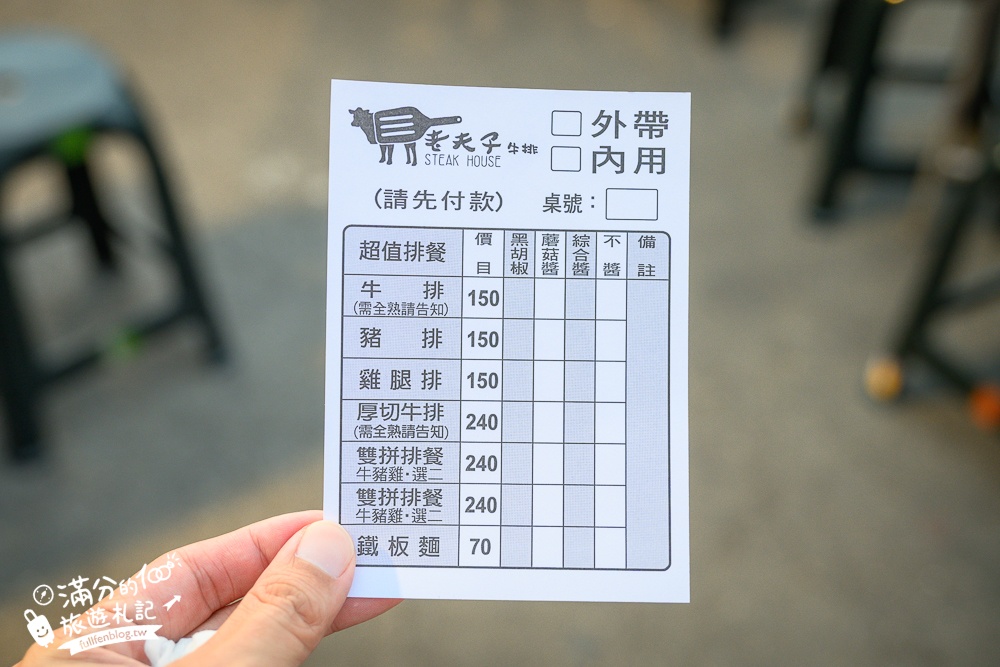 老夫子牛排
STEAK HOUSE
外帶
內用
(請先付款) 桌號：
超值排餐 價目 黑胡椒 蘑菇醬 綜合醬 不醬 備註
牛排 150
(需全熟請告知)
豬排 150
雞腿排 150
厚切牛排 240
(需全熟請告知)
雙拼排餐 240
牛豬雞·選二
雙拼排餐 240
牛豬雞·選二
鐵板麵 70
滿分的100
旅遊札記
fullfenblog.tw